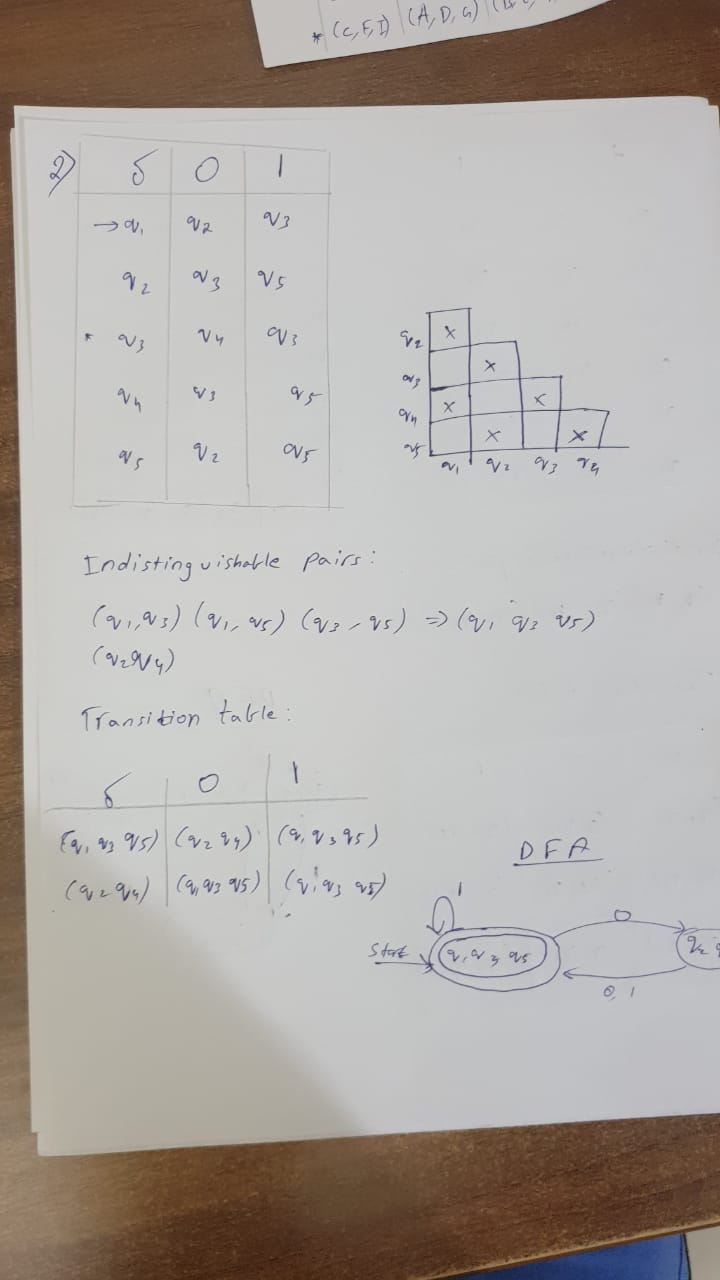 * (C,F,I) (A,D,G)
2) δ 0 1
→q₁ q₂ q₃
q₂ q₃ q₅
* q₃ q₄ q₃
q₄ q₃ q₅
q₅ q₂ q₅
q₂ x
q₃ x
q₄ x x
q₅ x x
q₁ q₂ q₃ q₄
Indistinguishable pairs:
(q₁,q₃) (q₁,q₅) (q₃,q₅) ⇒ (q₁ q₃ q₅)
(q₂q₄)
Transition table:
δ 0 1
(q₁ q₃ q₅) (q₂ q₄) (q₁ q₃ q₅)
(q₂ q₄) (q₁ q₃ q₅) (q₁ q₃ q₅)
DFA
1
0
Start q₁ q₃ q₅ q₂
0,1